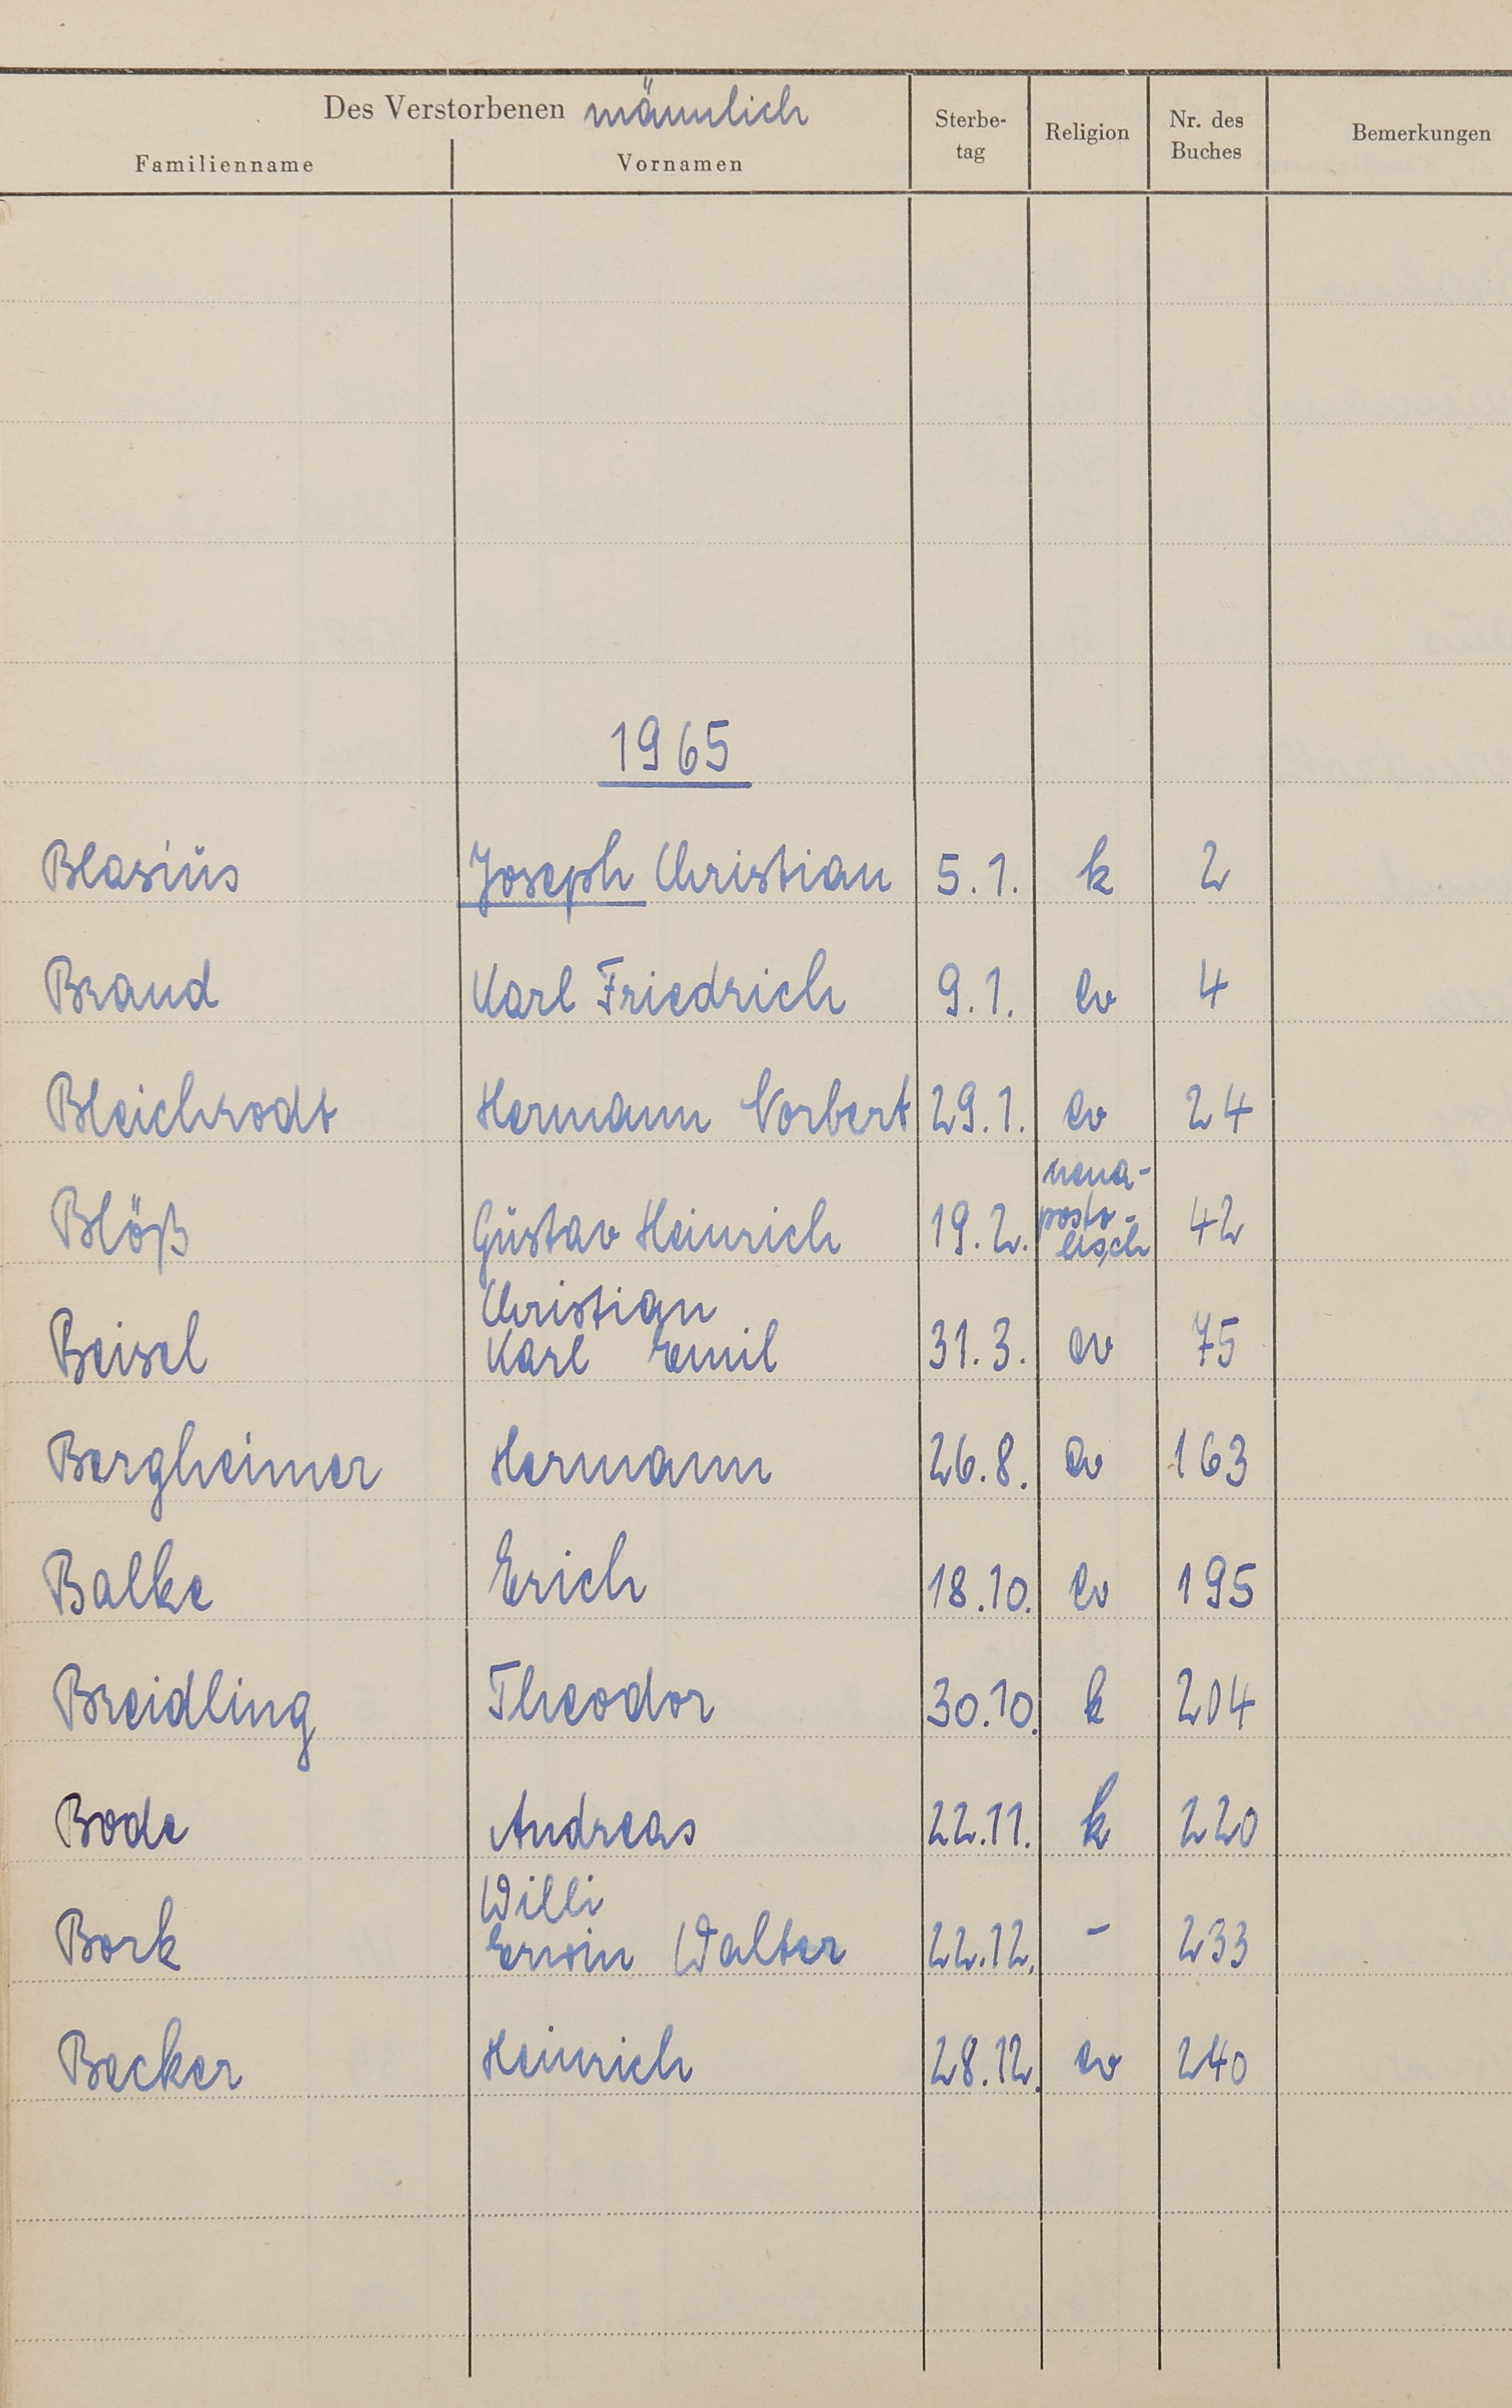 Des Verstorbenen männlich
Familienname Vornamen Sterbe-tag Religion Nr. des Buches Bemerkungen
1965
Blasius Joseph Christian 5.1. k 2
Brand Karl Friedrich 9.1. ev 4
Bleichrodt Hermann Norbert 29.1. ev 24
Blöß Gustav Heinrich 19.2. neua-posto-lisch 42
Christian
Beisel Karl Emil 31.3. ev 75
Bergheimer Hermann 26.8. ev 163
Balke Erich 18.10. ev 195
Breidling Theodor 30.10. k 204
Bode Andreas 22.11. k 220
Willi
Bork Erwin Walter 22.12. - 233
Becker Heinrich 28.12. ev 240